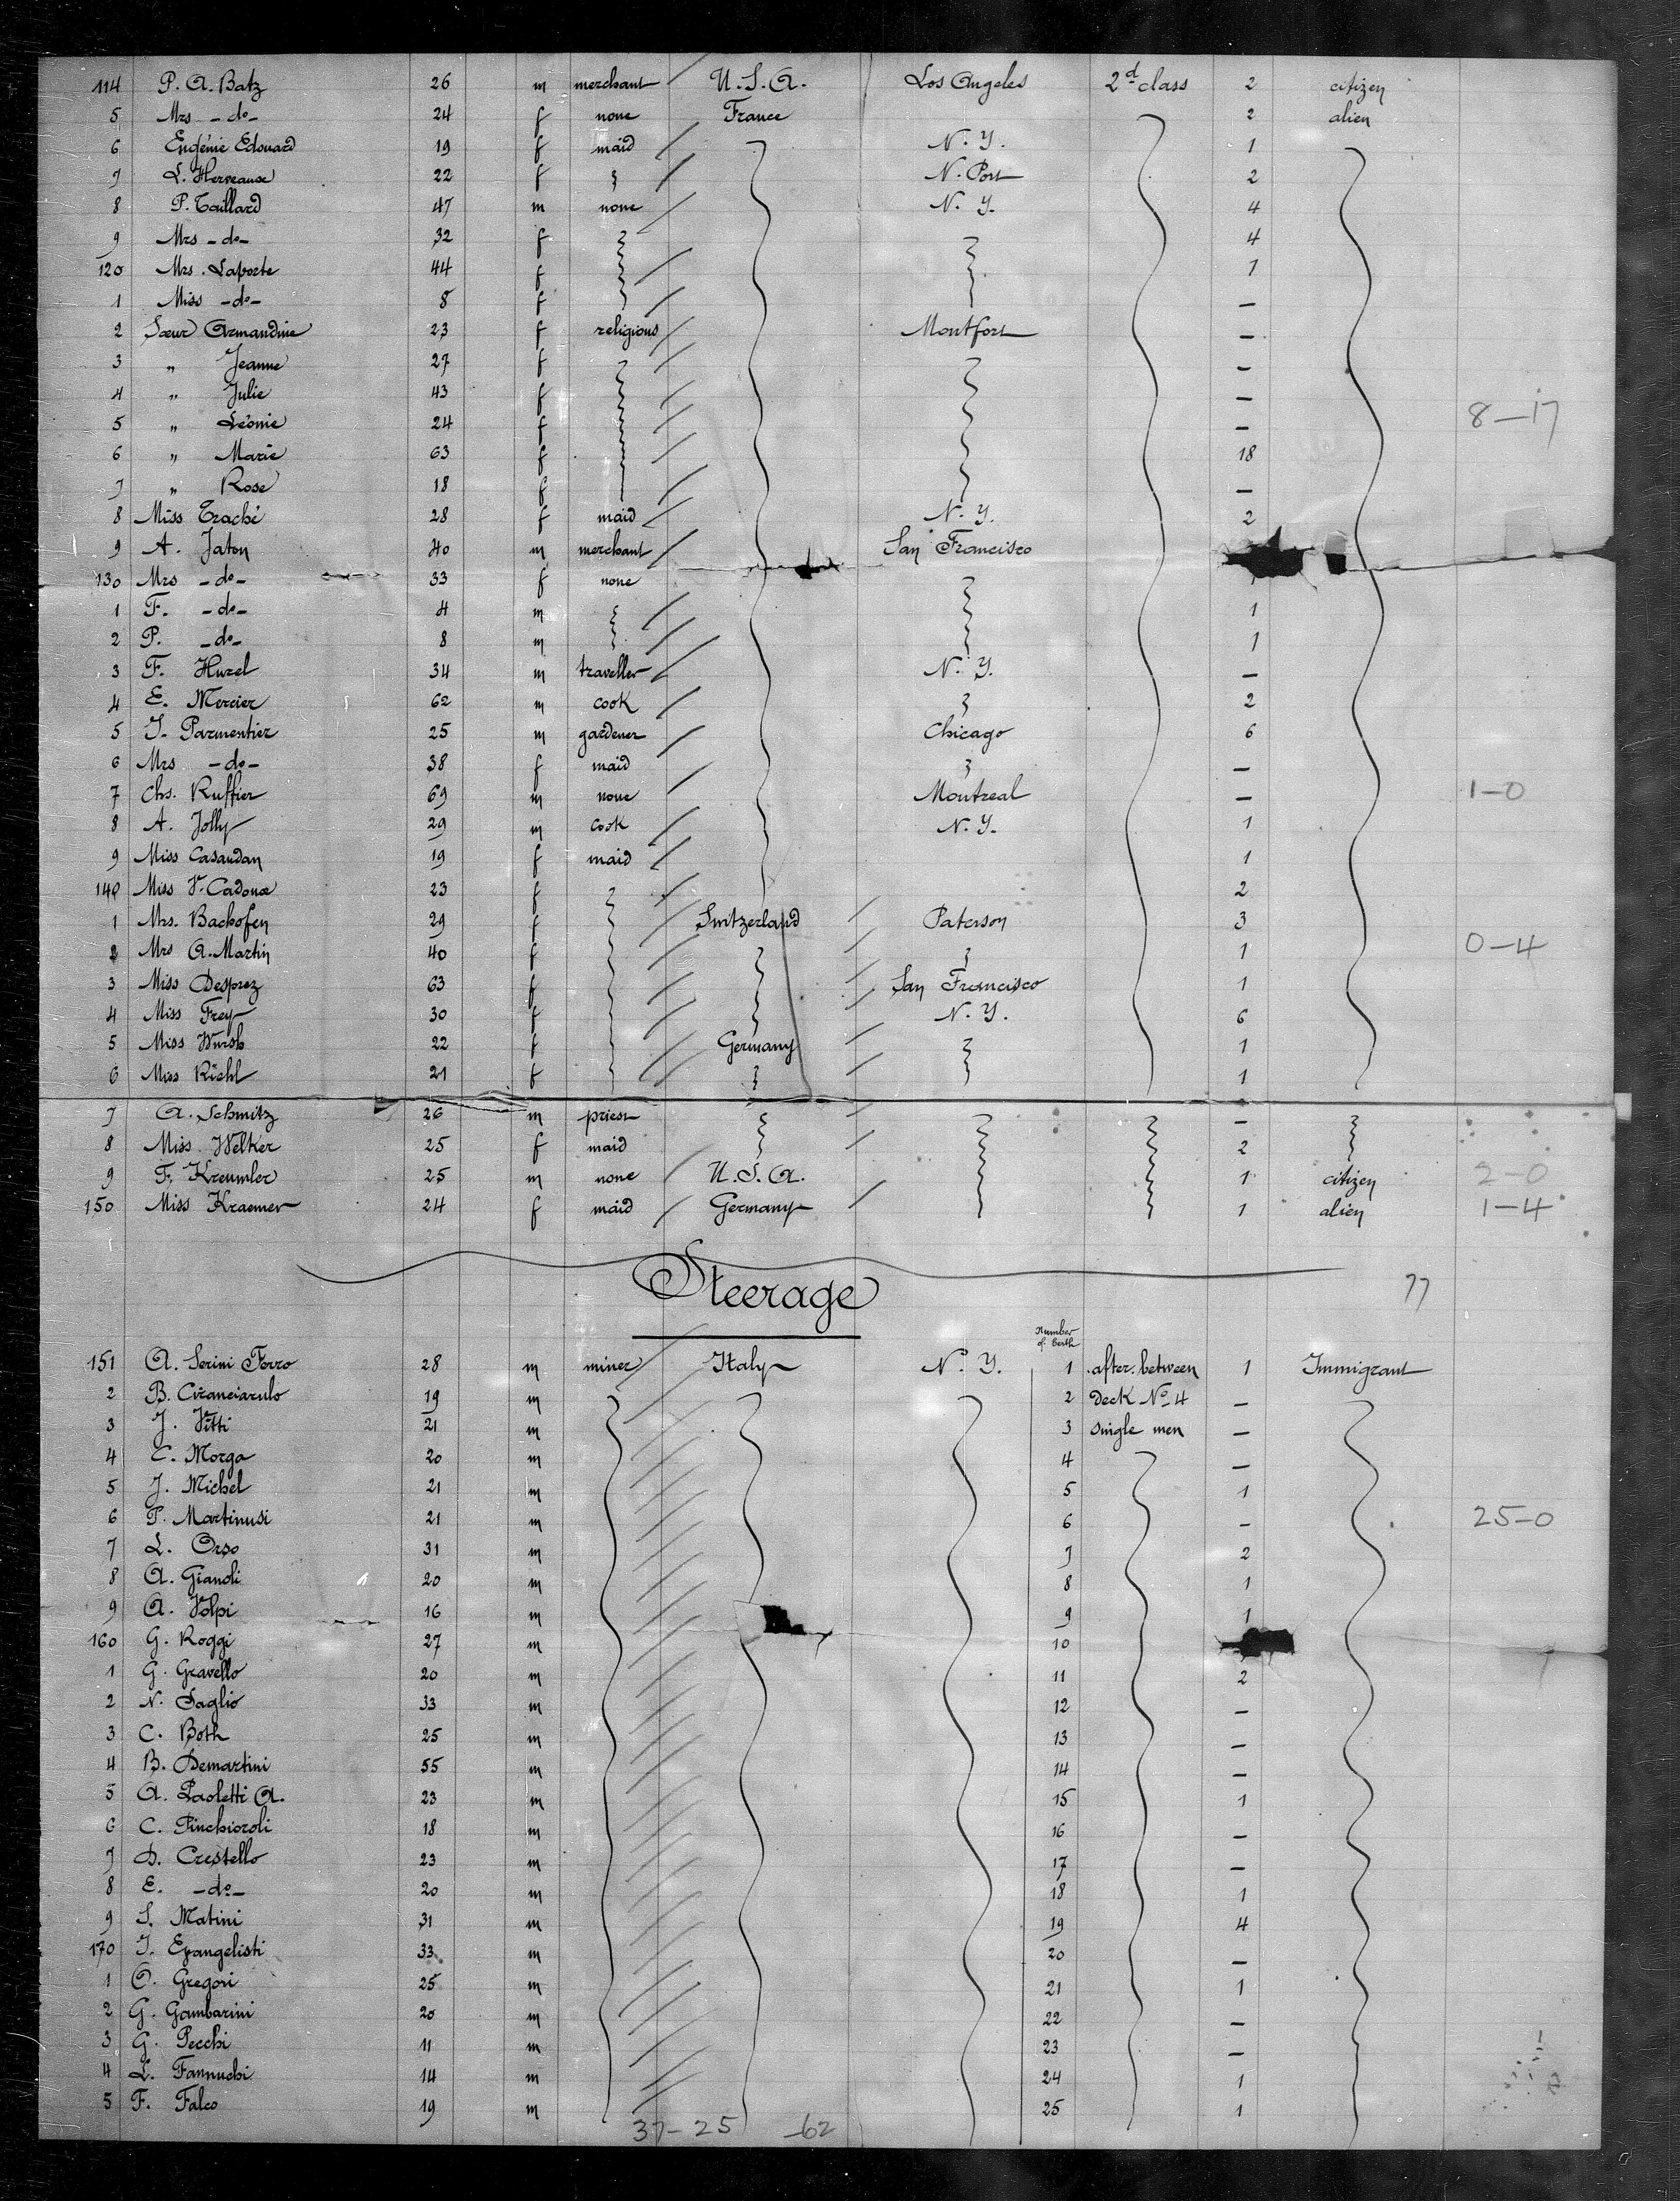 114 P. A. Batz 26 m merchant U.S.A. Los Angeles 2d class 2 citizen
5 Mrs -do- 24 f none France 2 alien
6 Eugénie Edouard 19 f maid N.Y. 1
7 L. Herveause 22 f N. Port 2
8 P. Taillard 47 m none N.Y. 4
9 Mrs -do- 32 f 4
120 Mrs. Laporte 44 f 1
1 Miss -do- 8 f —
2 Sœur Armandine 23 f religious Montfort —
3 „ Jeanne 27 f —
4 „ Julie 43 f —
5 „ Léonie 24 f —
6 „ Marie 63 f 18
8—17
7 „ Rose 18 f —
8 Miss Traché 28 f maid N.Y. 2
9 A. Jaton 40 m merchant San Francisco
130 Mrs -do- 33 f none
1 F. -do- 4 m 1
2 P. -do- 8 m 1
3 F. Hurel 34 m traveller N.Y. —
4 E. Mercier 62 m cook 2
5 J. Parmentier 25 m gardener Chicago 6
6 Mrs -do- 38 f maid —
7 Chs. Ruffier 69 m none Montreal — 1—0
8 A. Jolly 29 m cook N.Y. 1
9 Miss Casaudan 19 f maid 1
140 Miss V. Cadoux 23 f 2
1 Mrs. Backofen 29 f Switzerland Paterson 3
2 Mrs A. Martin 40 f 1 0—4
3 Miss Desprez 63 f San Francisco 1
4 Miss Frey 30 f N.Y. 6
5 Miss Wursh 22 f Germany 1
6 Miss Richl 21 f 1
7 A. Schmitz 26 m priest —
8 Miss Welker 25 f maid 2
9 F. Kreumler 25 m none U.S.A. 1 citizen 2—0
150 Miss Kraemer 24 f maid Germany 1 alien 1—4
Steerage
77
Number of berth
151 A. Serini Ferro 28 m miner Italy N.Y. 1 after between 1 Immigrant
2 B. Ciranciarulo 19 m 2 Deck No. 4 —
3 J. Vitti 21 m 3 single men —
4 C. Morga 20 m 4 —
5 J. Michel 21 m 5 1
6 P. Martinusi 21 m 6 — 25—0
7 L. Orso 31 m 7 2
8 A. Gianoli 20 m 8 1
9 A. Volpi 16 m 9 1
160 G. Roggi 27 m 10
1 G. Gravello 20 m 11 2
2 N. Saglio 33 m 12 —
3 C. Both 25 m 13 —
4 B. Demartini 55 m 14 —
5 A. Paoletti A. 23 m 15 1
6 C. Pinchioroli 18 m 16 —
7 D. Crestello 23 m 17 —
8 E. -do- 20 m 18 1
9 S. Matini 31 m 19 4
170 J. Evangelisti 33 m 20 —
1 O. Gregori 25 m 21 1
2 G. Gambarini 20 m 22 —
3 G. Pecchi 11 m 23 —
4 L. Fannuchi 14 m 24 1
5 F. Falco 19 m 25 1
37-25 -62